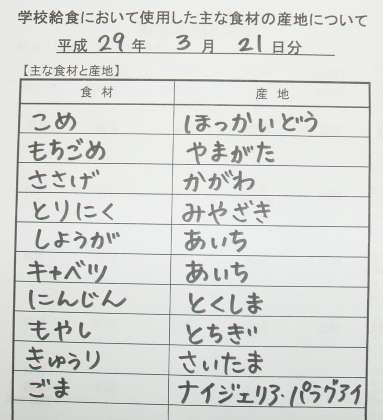 学校給食において使用した主な食材の産地について
平成 29 年 3 月 21 日分
【主な食材と産地】
食材 産地
こめ ほっかいどう
もちごめ やまがた
ささげ かがわ
とりにく みやざき
しょうが あいち
キャベツ あいち
にんじん とくしま
もやし とちぎ
きゅうり さいたま
ごま ナイジェリア・パラグアイ